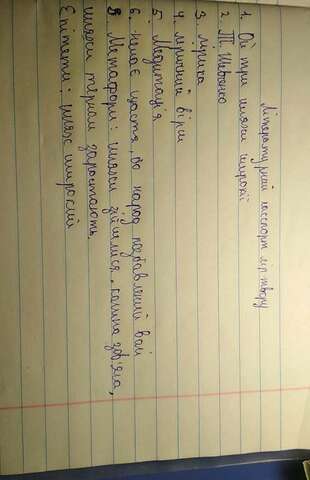 Літературний паспорт лір. твору
1. Ой три шляхи широкії
2. Т. Шевченко
3. Лірика
4. Ліричний вірш
5. Медитація
6. Немає щастя, бо народ позбавлений волі
8. Метафори: шляхи зійшлися, калина зов'яла,
шляхи терном заростають.
Епітети: шлях широкий